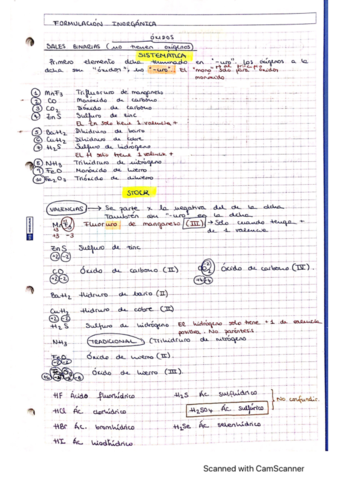 FORMULACIÓN INORGÁNICA
ÓXIDOS
SALES BINARIAS (no tienen oxígeno)
SISTEMÁTICA
Primero elemento dcha terminado en "-uro". Los oxígenos a la
dcha son "óxidos", no "-uro". El "mono" solo para óxidos
1 MnF3 Trifluoruro de manganeso
2 CO Monóxido de carbono
3 CO2 Dióxido de carbono
4 ZnS Sulfuro de zinc
El Zn solo tiene 1 valencia +
5 BaH2 Dihidruro de bario
6 CuH2 Dihidruro de cobre
7 H2S Sulfuro de hidrógeno
El H solo tiene 1 valencia +
8 NH3 Trihidruro de nitrógeno
9 FeO Monóxido de hierro
10 Fe2O3 Trióxido de dihierro
STOCK
VALENCIAS → Se parte x la negativa del de la dcha
También son "-uro" en la dcha
Fluoruro de manganeso (III) → Solo cuando tenga +
+3 -3 de 1 valencia
ZnS Sulfuro de zinc
+2 -2
CO Óxido de carbono (II) CO2 Óxido de carbono (IV)
+2 -2
BaH2 Hidruro de bario (II)
CuH2 Hidruro de cobre (II)
H2S Sulfuro de hidrógeno El hidrógeno solo tiene +1 de valencia
positiva. No paréntesis
NH3 TRADICIONAL (Trihidruro de nitrógeno
FeO Óxido de hierro (II)
Óxido de hierro (III)
HF Ácido fluorhídrico H2S Ác. sulfhídrico
HCl Ác clorhídrico H2SO4 Ác. sulfúrico No confundir.
HBr Ác. bromhídrico H2Se Ác selenhídrico
HI Ác iodhídrico
Scanned with CamScanner